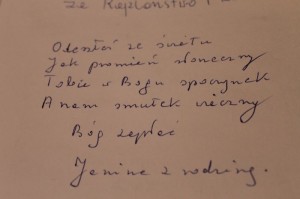 za Kapłaństwo i
Odeszłaś ze świata
Jak promień słoneczny
Tobie w Bogu spoczynek
A nam smutek wieczny
Bóg zapłać
Janina z rodziną.